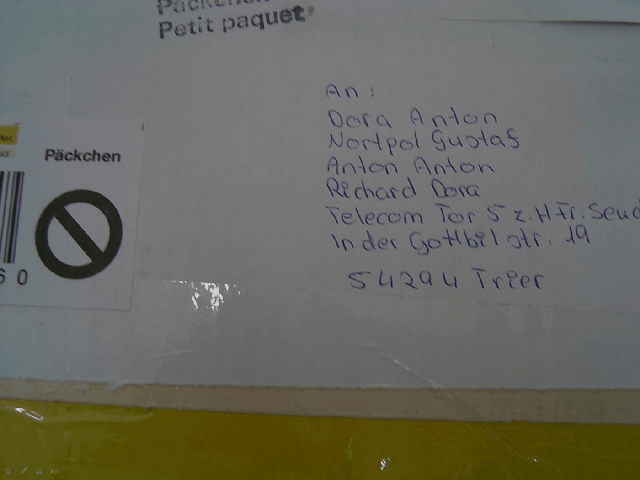 Päckchen
Petit paquet
An:
Dora Anton
Nortpol Gustaf
Anton Anton
Richard Dora
Telecom Tor 5 z.H Fr.
In der Gottbilstr. 19
54294 Trier
Päckchen
60